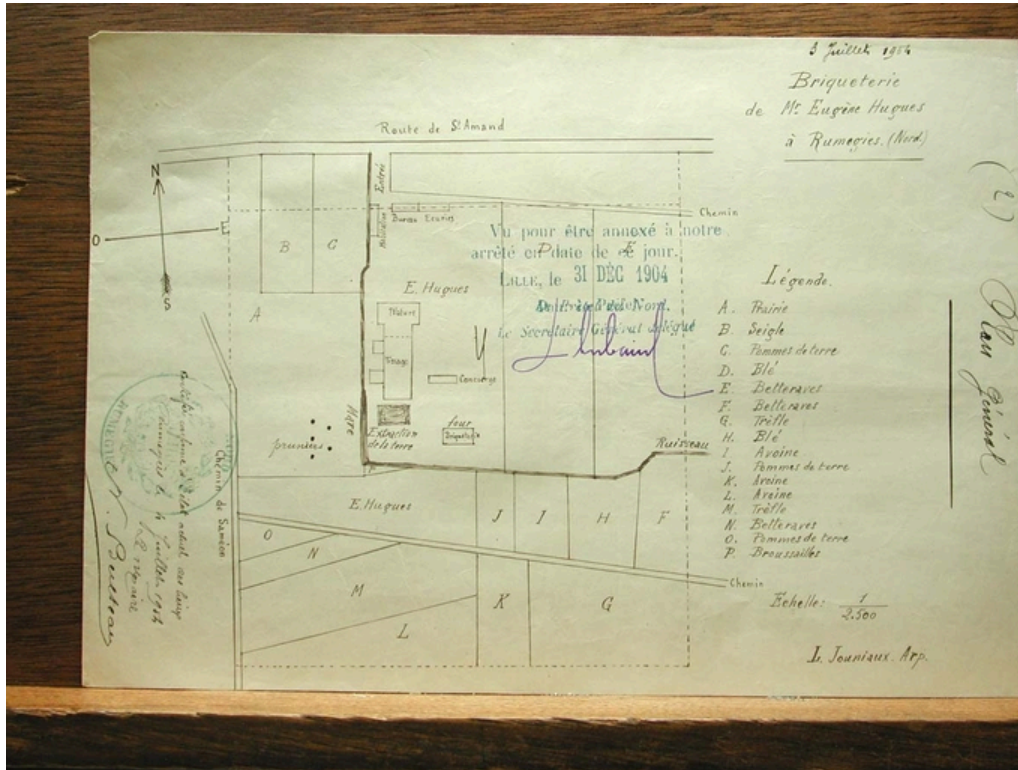 3 Juillet 1904
Briqueterie
de Mr. Eugène Hugues
à Rumegies. (Nord)
(2)
Plan Général
Route de St Amand
Entrée
N
O
E
S
Habitation
Bureau
Ecuries
Chemin
B
C
Vu pour être annexé à notre
arrêté en date de ce jour.
D
E
LILLE, le 31 DÉC 1904
Le Secrétaire Général délégué
E. Hugues
A
Hare
Concierge
Extraction
de la terre
four
Briqueterie
pruniers
Ruisseau
P
E. Hugues
J
I
H
F
O
N
M
L
K
G
Chemin
Chemin de Saméon
Légende.
A. Prairie
B. Seigle
C. Pommes de terre
D. Blé
E. Betteraves
F. Betteraves
G. Trèfle
H. Blé
I. Avoine
J. Pommes de terre
K. Avoine
L. Avoine
M. Trèfle
N. Betteraves
O. Pommes de terre
P. Broussailles
Echelle: 1/2.500
L. Jouniaux. Arp.
Certifié conforme à l'état actuel des lieux
Rumegies le 4 Juillet 1904
Le Maire